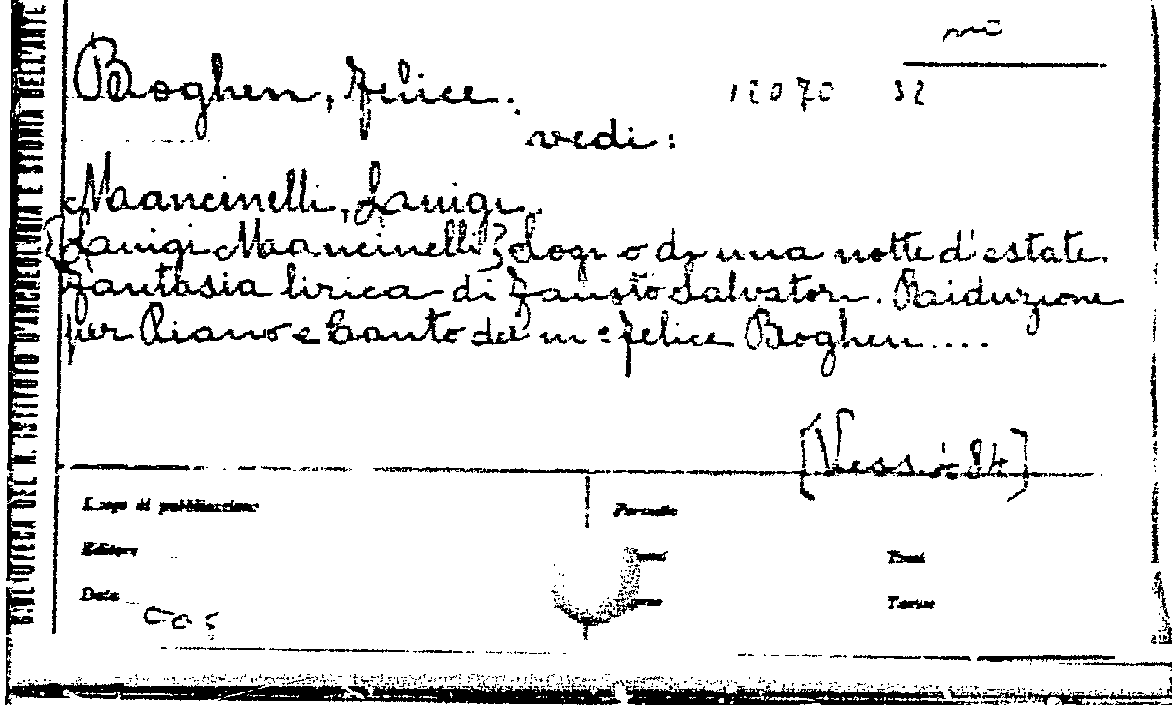 BIBLIOTECA DEL R. ISTITUTO D'ARCHEOLOGIA E STORIA DELL'ARTE
Boghen, Felice.
12070 32
vedi:
Mancinelli, Luigi.
[Luigi Mancinelli] Sogno di una notte d'estate.
Fantasia lirica di Fausto Salvatori. Riduzione
per Piano e Canto del m° Felice Boghen....
[Vess. 
Luogo di pubblicazione
Formato
Editore
Tomi
Data
Tavole